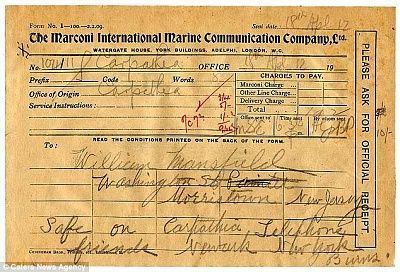 Form No. 1—100.—2.2.09. Sent date 18th Apl 12
The Marconi International Marine Communication Company, Ltd.
WATERGATE HOUSE, YORK BUILDINGS, ADELPHI, LONDON, W.C.
No. Carpathia OFFICE 18th Apl 12 19
Prefix Code Words
CHARGES TO PAY.
Office of Origin Carpathia
Marconi Charge
Other Line Charge
Service Instructions
Delivery Charge
Total
Office sent to Time sent By whom sent
READ THE CONDITIONS PRINTED ON THE BACK OF THE FORM.
PLEASE ASK FOR OFFICIAL RECEIPT
10/-
To: William Mansfield
Washington St
Morristown New Jersey
Safe on Carpathia Telephone
friends Newark New York
Burns
© Caters News Agency